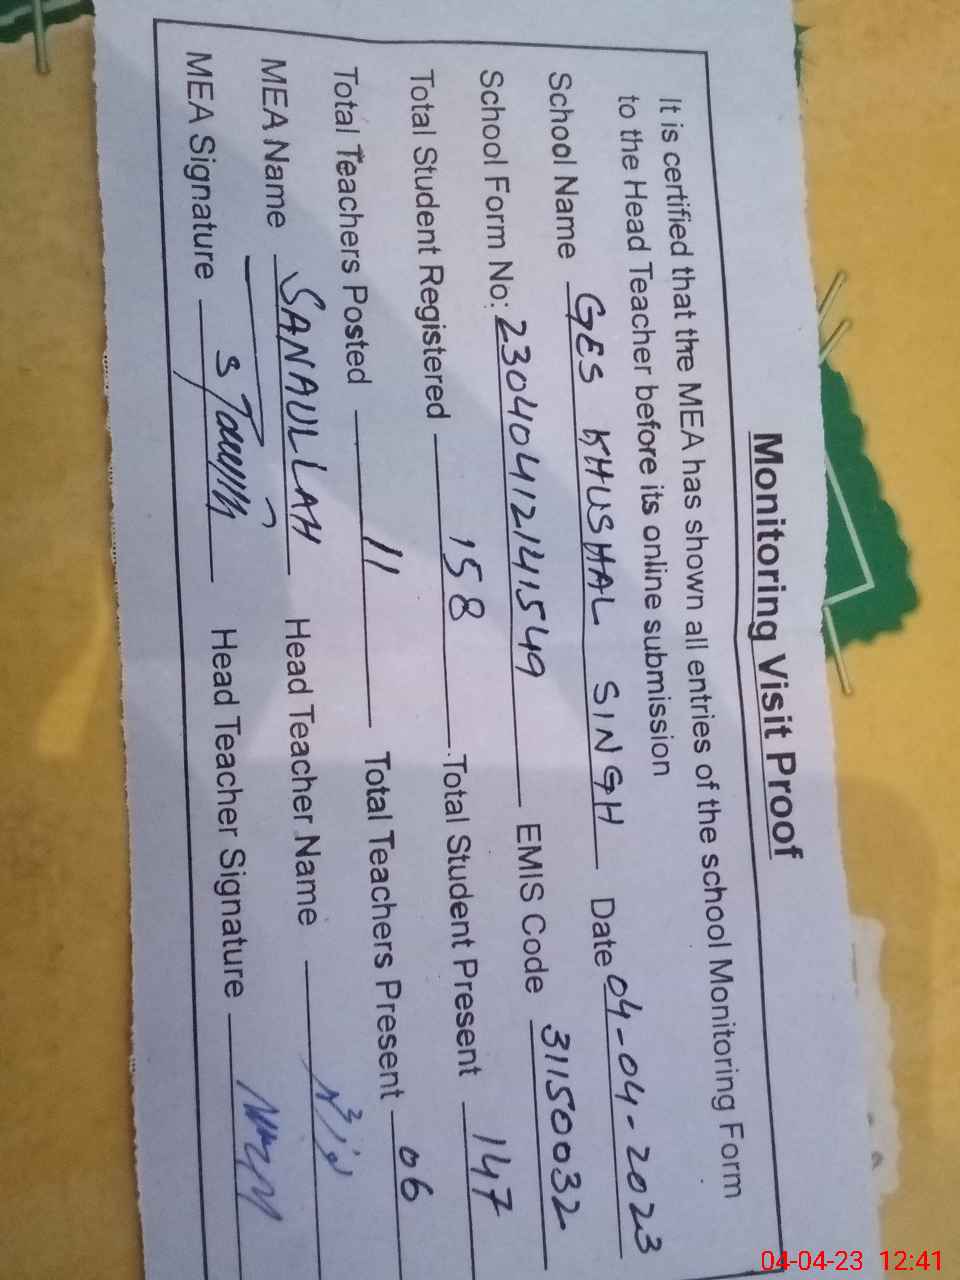 Monitoring Visit Proof
It is certified that the MEA has shown all entries of the school Monitoring Form
to the Head Teacher before its online submission
School Name GES KHUSHAL SINGH Date 04-04-2023
School Form No: 23040412141549 EMIS Code 31150032
Total Student Registered 158 Total Student Present 147
Total Teachers Posted 11 Total Teachers Present 06
MEA Name SANAULLAH Head Teacher Name
MEA Signature Head Teacher Signature
04-04-23 12:41